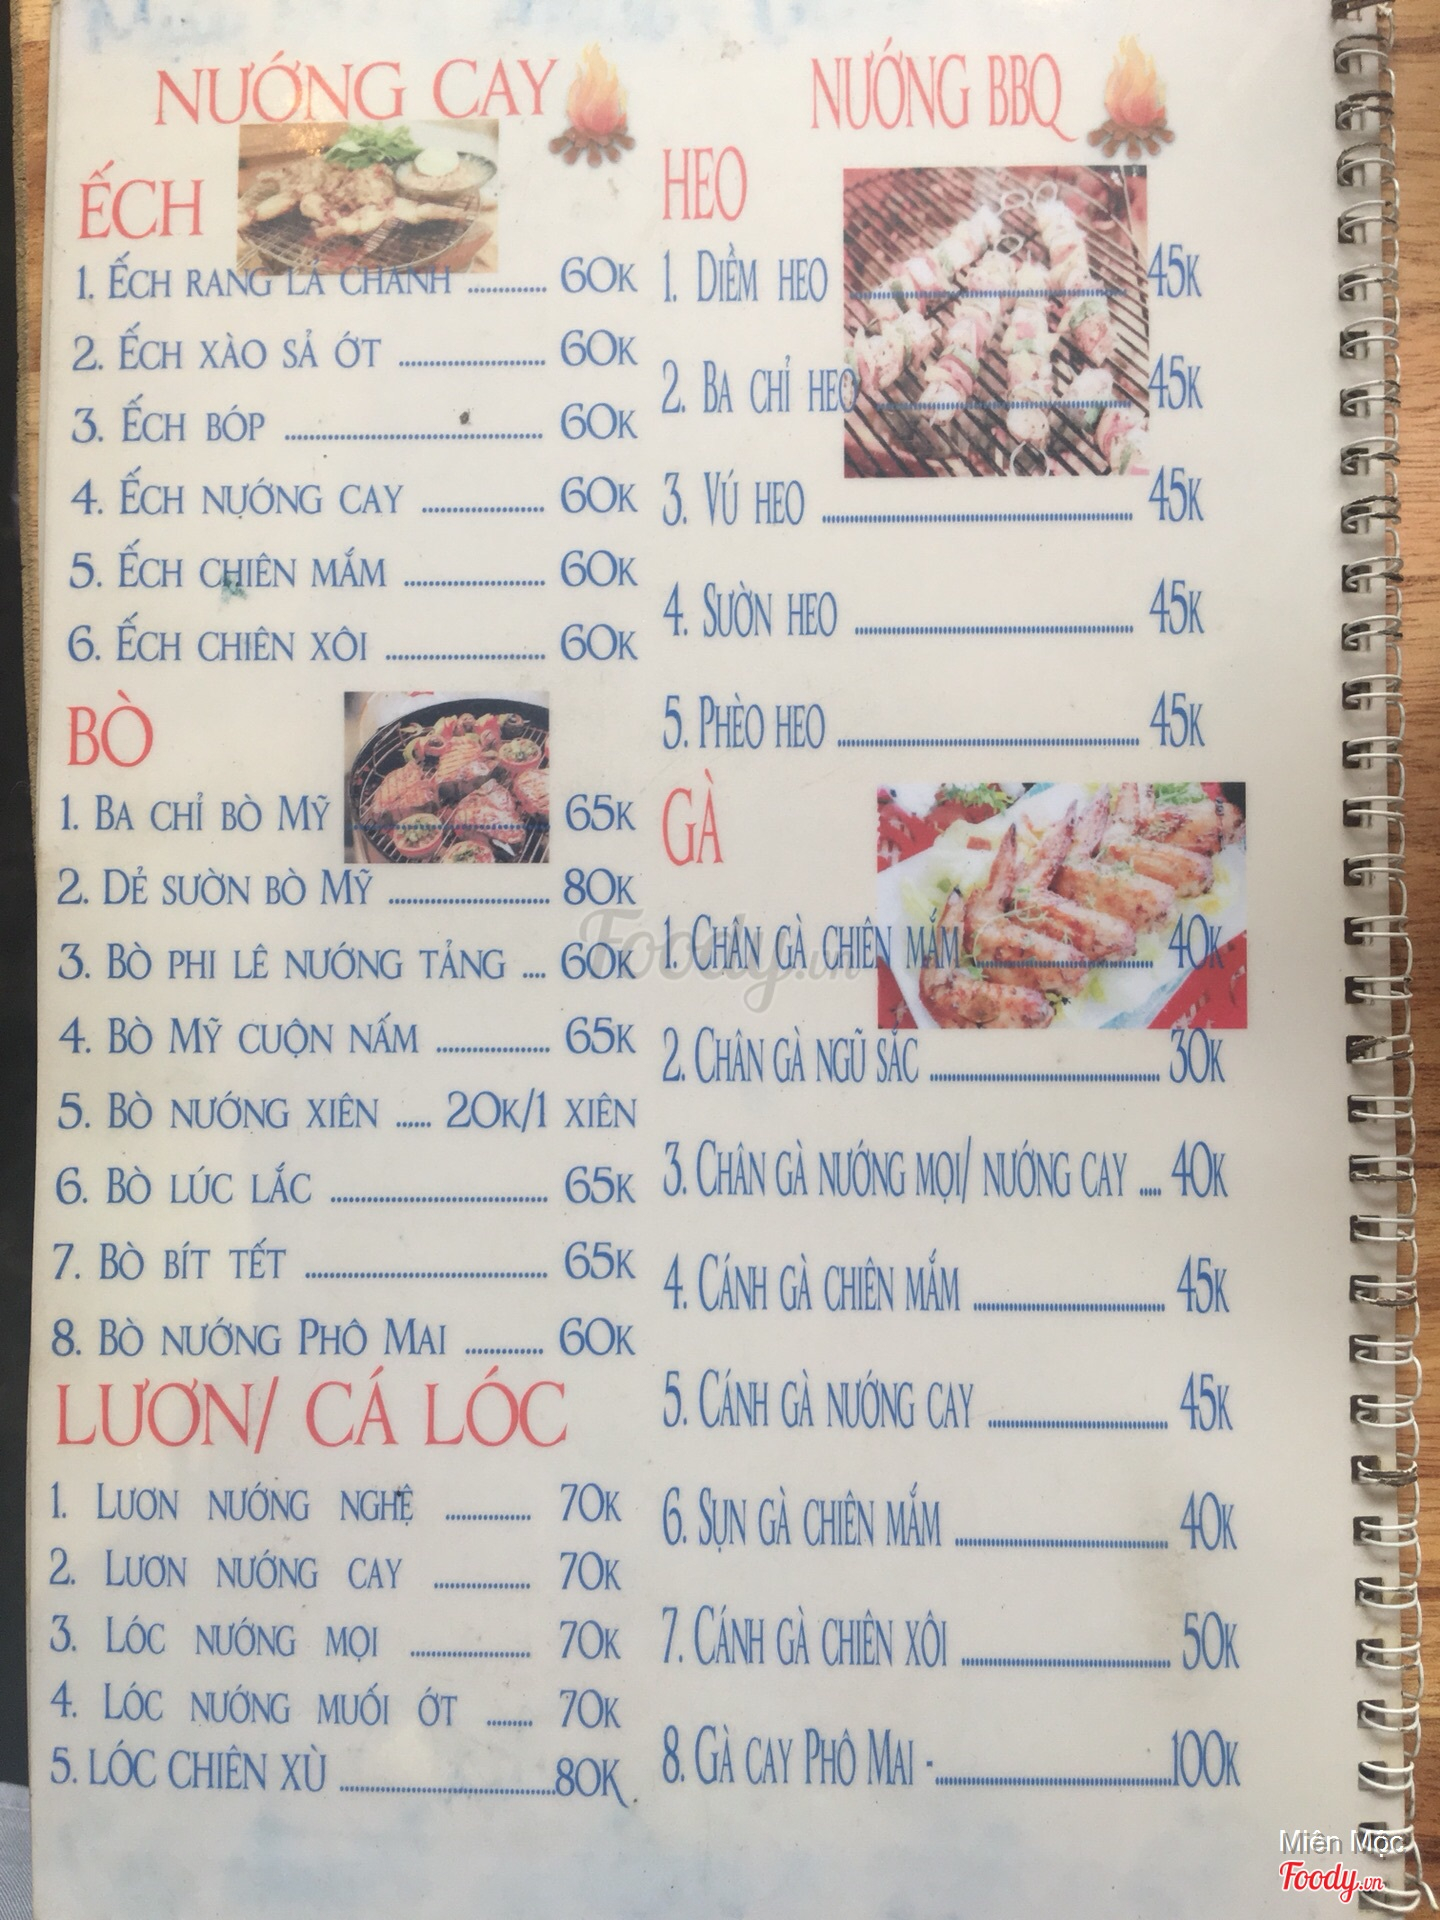 NƯỚNG CAY
ẾCH
1. ẾCH RANG LÁ CHANH ............ 60K
2. ẾCH XÀO SẢ ỚT ............ 60K
3. ẾCH BÓP ............ 60K
4. ẾCH NƯỚNG CAY ............ 60K
5. ẾCH CHIÊN MẮM ............ 60K
6. ẾCH CHIÊN XÔI ............ 60K
BÒ
1. BA CHỈ BÒ MỸ ............ 65K
2. DẺ SƯỜN BÒ MỸ ............ 80K
3. BÒ PHI LÊ NƯỚNG TẢNG .... 60K
4. BÒ MỸ CUỘN NẤM ............ 65K
5. BÒ NƯỚNG XIÊN ...... 20K/1 XIÊN
6. BÒ LÚC LẮC ............ 65K
7. BÒ BÍT TẾT ............ 65K
8. BÒ NƯỚNG PHÔ MAI ............ 60K
LƯƠN/ CÁ LÓC
1. LƯƠN NƯỚNG NGHỆ ............ 70K
2. LƯƠN NƯỚNG CAY ............ 70K
3. LÓC NƯỚNG MỌI ............ 70K
4. LÓC NƯỚNG MUỐI ỚT ........ 70K
5. LÓC CHIÊN XÙ ............80K
NƯỚNG BBQ
HEO
1. DIỀM HEO ............ 45K
2. BA CHỈ HEO ............ 45K
3. VÚ HEO ............ 45K
4. SƯỜN HEO ............ 45K
5. PHÈO HEO ............ 45K
GÀ
1. CHÂN GÀ CHIÊN MẮM ............ 40K
2. CHÂN GÀ NGŨ SẮC ............ 30K
3. CHÂN GÀ NƯỚNG MỌI/ NƯỚNG CAY ..... 40K
4. CÁNH GÀ CHIÊN MẮM ............ 45K
5. CÁNH GÀ NƯỚNG CAY ............ 45K
6. SỤN GÀ CHIÊN MẮM ............ 40K
7. CÁNH GÀ CHIÊN XÔI ............ 50K
8. GÀ CAY PHÔ MAI -............100K
Foody.vn
Miên Mộc
Foody.vn